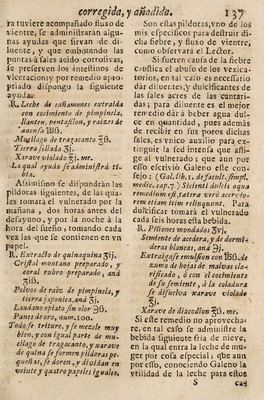 corregida, y añadida. 137
ra tuviere acompañado fluxo de
vientre, se administrarán algu-
nas ayudas que sirvan de di-
luente, y que embotando las
puntas à sales acido corrosivas,
se preserven los intestinos de
vlceracion; y por remedio apro-
priado dispongo la siguiente
ayuda.
R. Leche de cañamones extraida
con cocimiento de pimpinela,
llanten, pentafilon, y raizes de
Mucilago de tragacanto
Tierra sellada
Xarave violado me.
La qual ayuda se administrarà ti-
bia.
Assimismo se dispondràn las
pildoras siguientes, de las qua-
les tomarà el vulnerado por la
mañana, dos horas antes del
desayuno, y por la noche à la
hora del sueño, tomando cada
vez las que se contienen en vn
papel.
R. Extracto de quinaquina
Cristal montano preparado, y
coral rubro preparado, and
Polvos de raiz. de pimpinela, y
tierra japonica, and
Laudano opiato sin olor
Panes de oro, num. 100.
Todo se triture, y se mezcle muy
bien, y con igual parte de mu-
cilago de tragacanto, y xarave
de quina se formen pildoras pe-
queñas, se doren, y dividan en
veinte y quatro papeles iguales.
Son estas pildoras, vno de los
mis especificos para destruir di-
cha fiebre, y fluxo de vientre,
como observarà el Lector.
Si fueren causa de la fiebre
Custica el abuso de los vexica-
torios, en tal caso es necessario
dàr diluentes, y dulcificantes de
las sales acres de las cantari-
das; para diluente es el mejor
remedio dàr à beber agua dul-
ce en quantidad, pues además
de recibir en sus poros dichas
sales, es vnico auxilio para ex-
tinguir la sed intensa que afli-
ge al vulnerado; que aun por
esso escriviò Galeno este con-
sejo: (Gal. lib. 1. de facult. simpl.
medic. cap. 7.) Sicienti dulcis aqua
remedium est, cætera verò acerrio-
rem etiam sitim relinquunt. Para
dulcificar tomarà el vulnerado
cada seis horas esta bebida.
R. Piñones mondados
Semiente de acedera, y de dormi-
deras blancas, and
Extraigase emulsion con de
zumo de hojas de malvas cla-
rificado, ò con el cocimiento
de su semiente, à la coladura
se dissuelva xarave violado
Xarave de diacodion me.
Si este remedio no aprovecha-
re, en tal caso se administre la
bebida siguiente fria de nieve,
en la qual entra la leche de mu-
ger por cosa especial; que aun
por esso, conociendo Galeno la
vtilidad de la leche para estos
S ca-